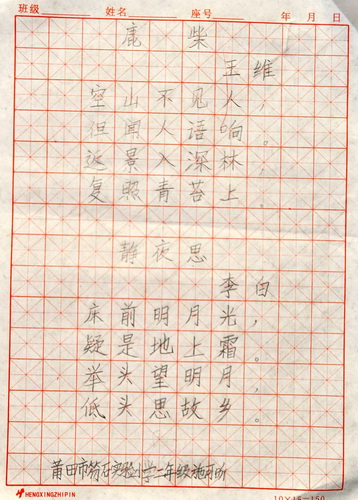 班级 姓名 座号 年 月 日
鹿柴
王维
空山不见人，
但闻人语响。
返景入深林，
复照青苔上。
静夜思
李白
床前明月光，
疑是地上霜。
举头望明月，
低头思故乡。
莆田市筱石实验小学二年级施
HENGXINGZHIPIN
10×15=150